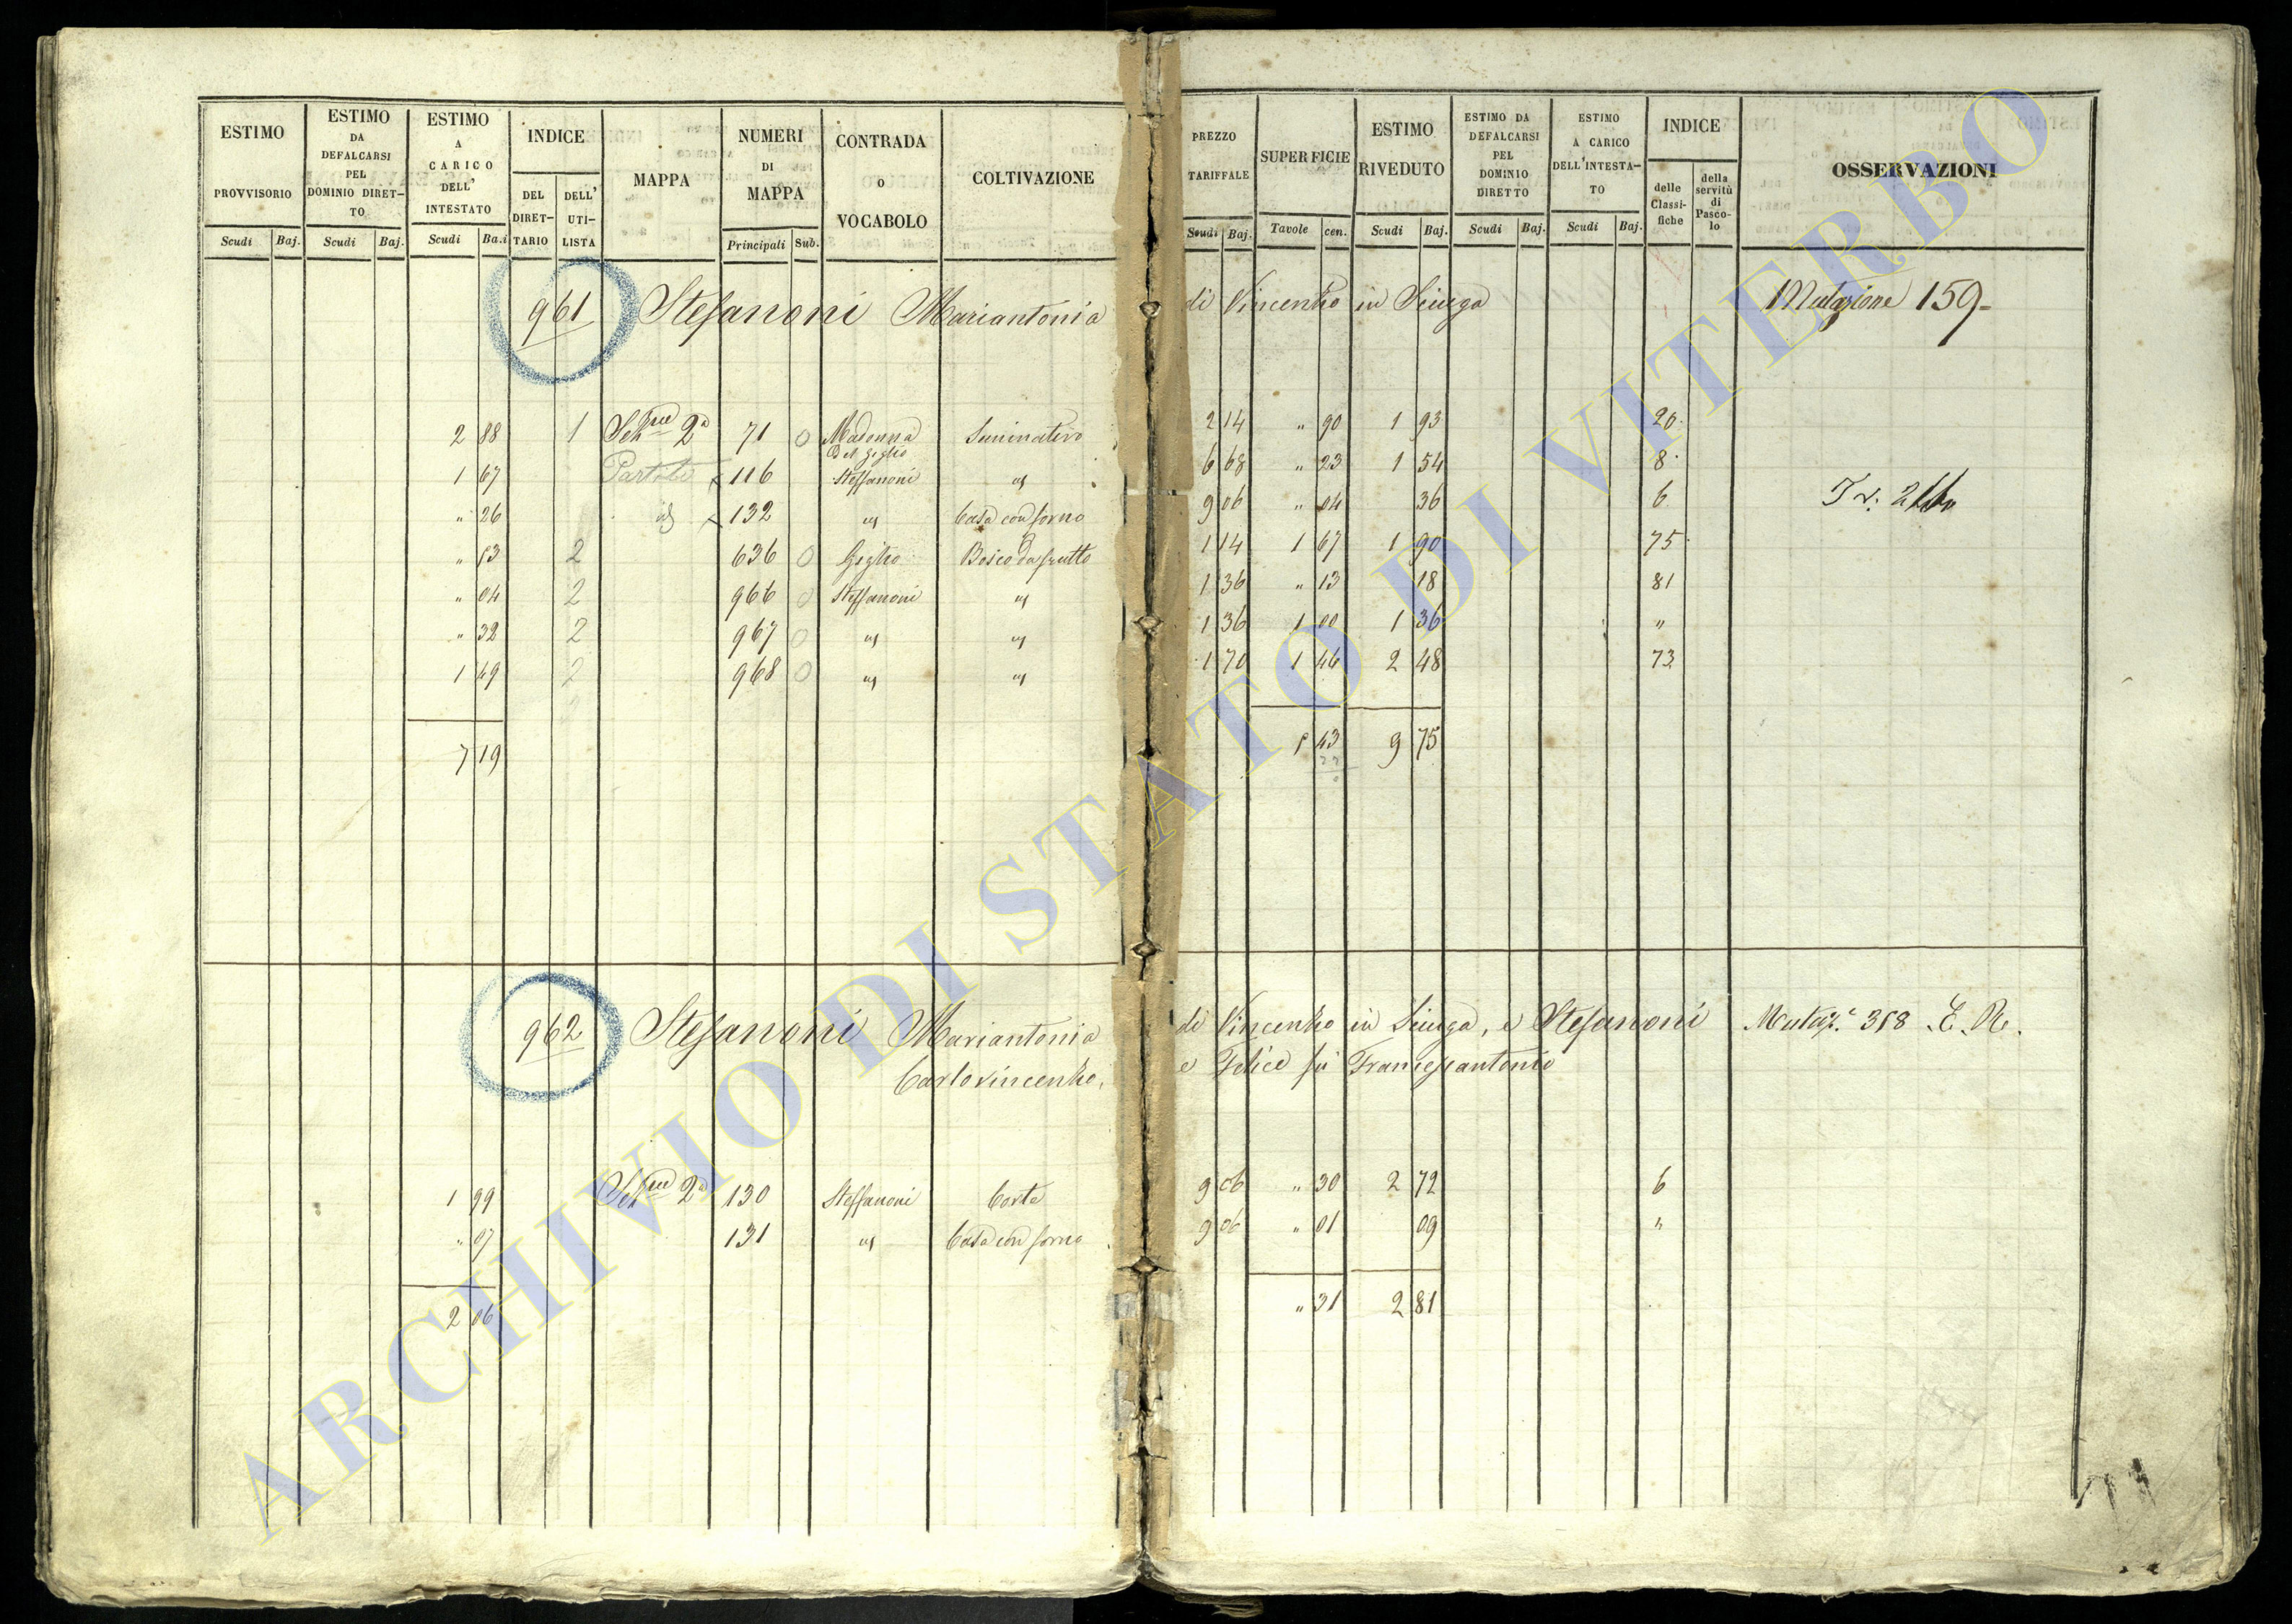 ESTIMO PROVVISORIO
ESTIMO DA DEFALCARSI PEL DOMINIO DIRET-TO
ESTIMO A CARICO DELL' INTESTATO
INDICE
DEL DIRET-TARIO
DELL' UTI-LISTA
MAPPA
NUMERI DI MAPPA
CONTRADA o VOCABOLO
COLTIVAZIONE
PREZZO TARIFFALE
SUPERFICIE
ESTIMO RIVEDUTO
ESTIMO DA DEFALCARSI PEL DOMINIO DIRETTO
ESTIMO A CARICO DELL'INTESTA-TO
INDICE
delle Classi-fiche
della servitù di Pasco-lo
OSSERVAZIONI
Scudi Baj. Scudi Baj. Scudi Ba.i Principali Sub. Scudi Baj. Tavole cen. Scudi Baj. Scudi Baj. Scudi Baj.
961 Stefanoni Mariantonia di Vincenzo in Mutazione 159
2 88 1 2ª 71 0 Madonna del Giglio Seminativo 2 14 " 90 1 93 20
1 67 116 Steffanoni " 6 68 " 23 1 54 8
" 26 id 132 " Casa con forno 9 06 " 04 36 6
" 53 2 636 0 Giglio Bosco da frutto 1 14 1 67 1 90 75
" 04 2 966 0 Steffanoni " 1 36 " 13 18 81
" 32 2 967 0 " " 1 36 1 00 1 36 "
1 49 2 968 0 " " 1 70 1 46 2 48 73
7 19 5 43 9 75
962 Stefanoni Mariantonia di Vincenzo in , e Stefanoni Mutaz.e 358 E. R.
Carlovincenzo, e Felice fu Francescantonio
1 99 2ª 130 Steffanoni Corte 9 06 " 30 2 72 6
" 07 131 " Casa con forno 9 06 " 01 09 "
2 06 " 31 2 81
ARCHIVIO DI STATO DI VITERBO